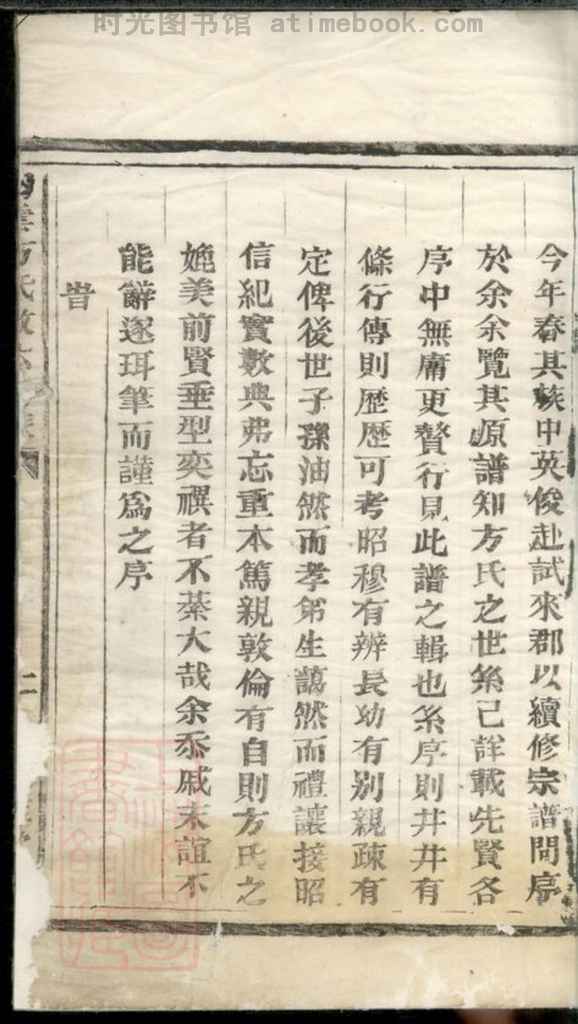 时光图书馆 atimebook.com
今年春其族中英俊赴試來郡以續修宗譜問序
於余余覽其原譜知方氏之世系已詳載先賢各
序中無庸更贅行見此譜之輯也系序則井井有
條行傳則歷歷可考昭穆有辨長幼有別親疎有
定俾後世子孫油然而孝弟生藹然而禮讓接昭
信紀實數典弗忘重本篤親敦倫有自則方氏之
媲美前賢垂型奕禩者不綦大哉余忝戚末誼不
能辭遂珥筆而謹為之序
旹
方氏
二